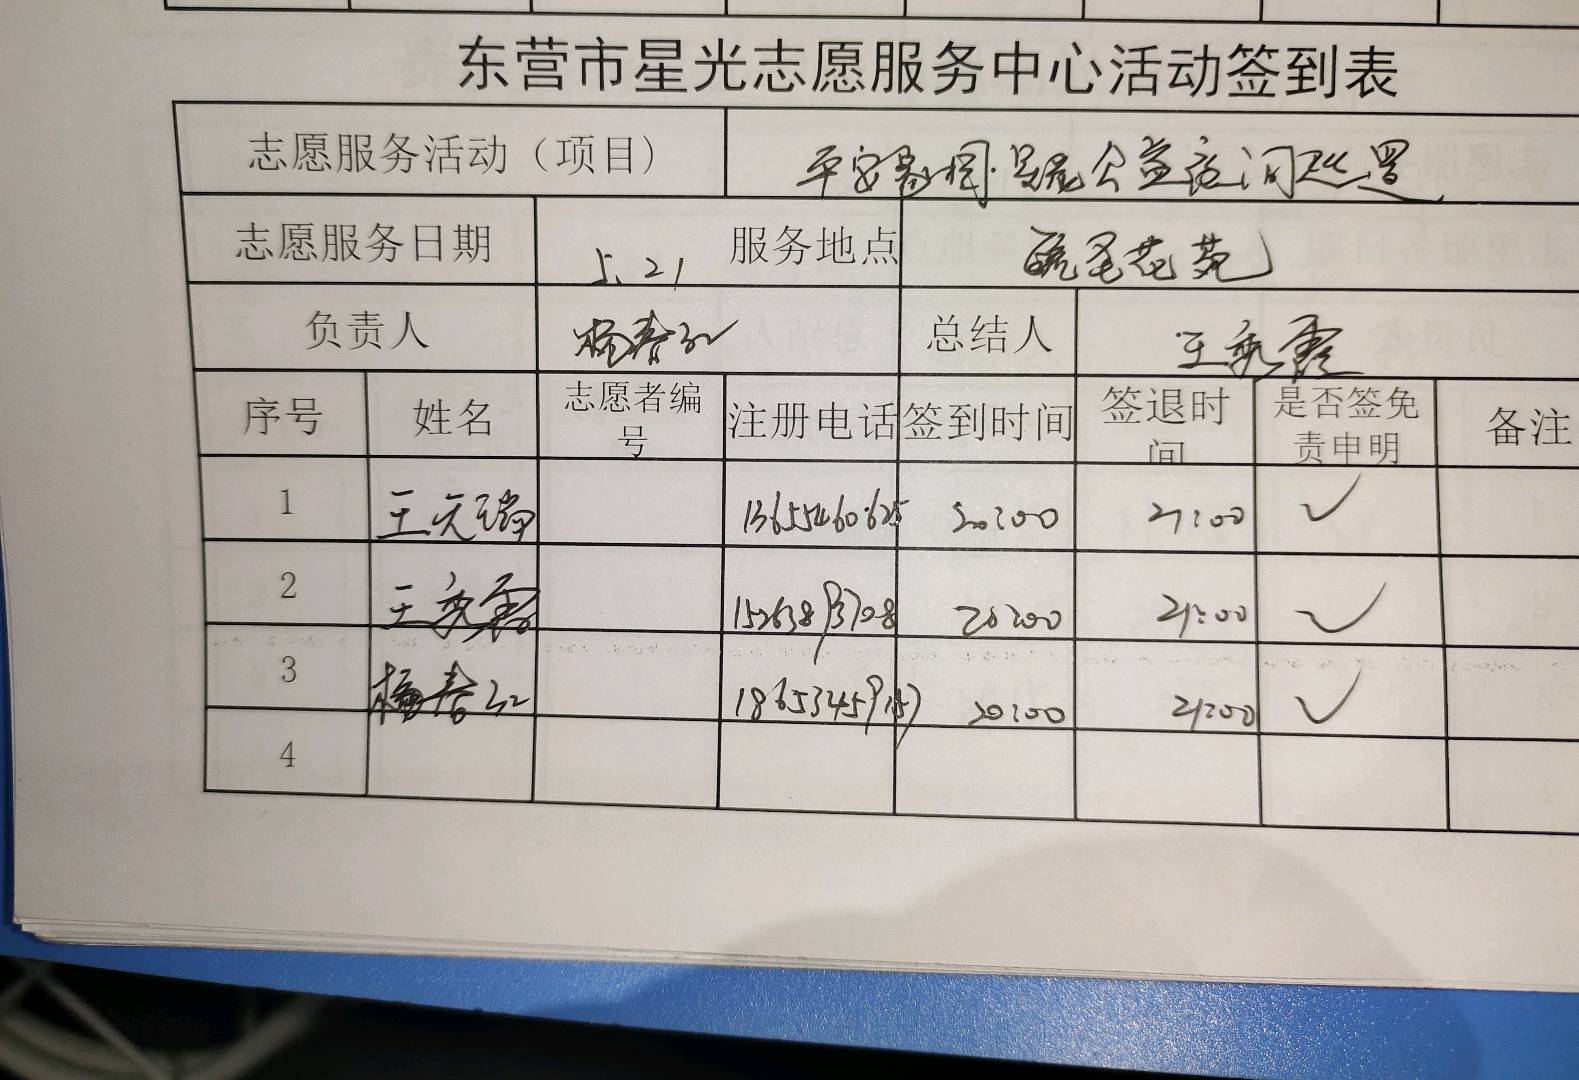 东营市星光志愿服务中心活动签到表
志愿服务活动（项目） 平安 公益夜间巡逻
志愿服务日期 5.21 服务地点 花苑
负责人 杨春红 总结人 王秀霞
序号 姓名 志愿者编号 注册电话 签到时间 签退时间 是否签免责申明 备注
1 王天瑞 20:00 21:00 ✓
2 王秀霞 20:00 21:00 ✓
3 杨春红 20:00 21:00 ✓
4